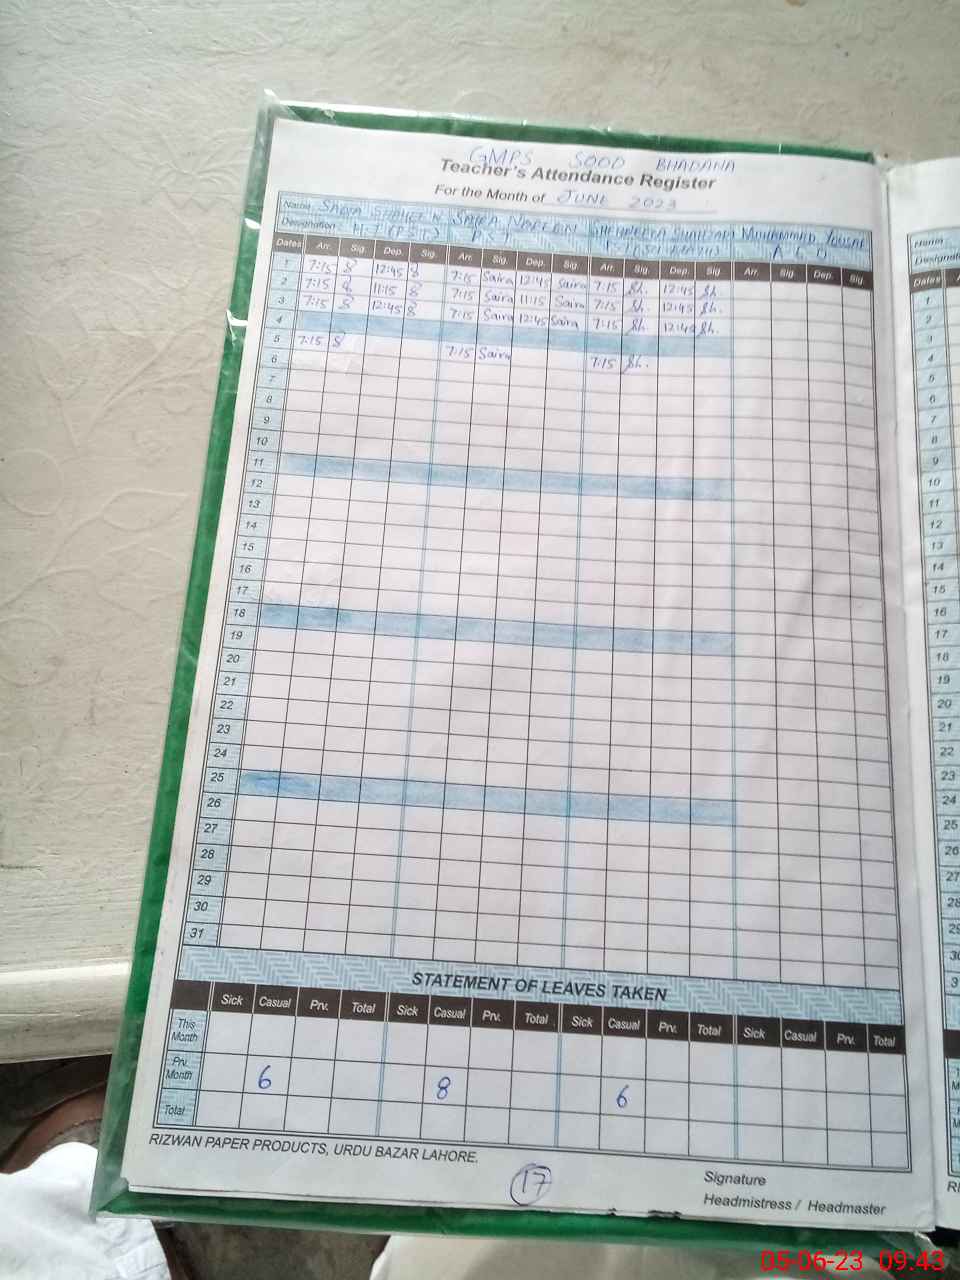 GMPS SOOD BHADANA
Teacher's Attendance Register
For the Month of JUNE 2023
Name SADIA SHAHEEN SAIRA NAREEN SHEHREERA SHAHZADI MUHAMMAD YOUSAF
Designation H.T (PST) P S T A E O
Dates Arr. Sig. Dep. Sig. Arr. Sig. Dep. Sig. Arr. Sig. Dep. Sig. Arr. Sig. Dep. Sig.
1 7:15 8 12:45 8 7:15 Saira 12:45 Saira 7:15 Sh. 12:45 Sh.
2 7:15 8 11:15 8 7:15 Saira 11:15 Saira 7:15 Sh. 12:45 Sh.
3 7:15 8 12:45 8 7:15 Saira 12:45 Saira 7:15 Sh. 12:45 Sh.
4
5 7:15 8 7:15 Saira 7:15 Sh.
6
7
8
9
10
11
12
13
14
15
16
17
18
19
20
21
22
23
24
25
26
27
28
29
30
31
STATEMENT OF LEAVES TAKEN
Sick Casual Prv. Total Sick Casual Prv. Total Sick Casual Prv. Total Sick Casual Prv. Total
This Month
Prv. Month 6 8 6
Total
RIZWAN PAPER PRODUCTS, URDU BAZAR LAHORE.
17
Signature
Headmistress / Headmaster
Name
Designat
Dates
1
2
3
4
5
6
7
8
9
10
11
12
13
14
15
16
17
18
19
20
21
22
23
24
25
26
27
28
29
30
3
05-06-23 09.43